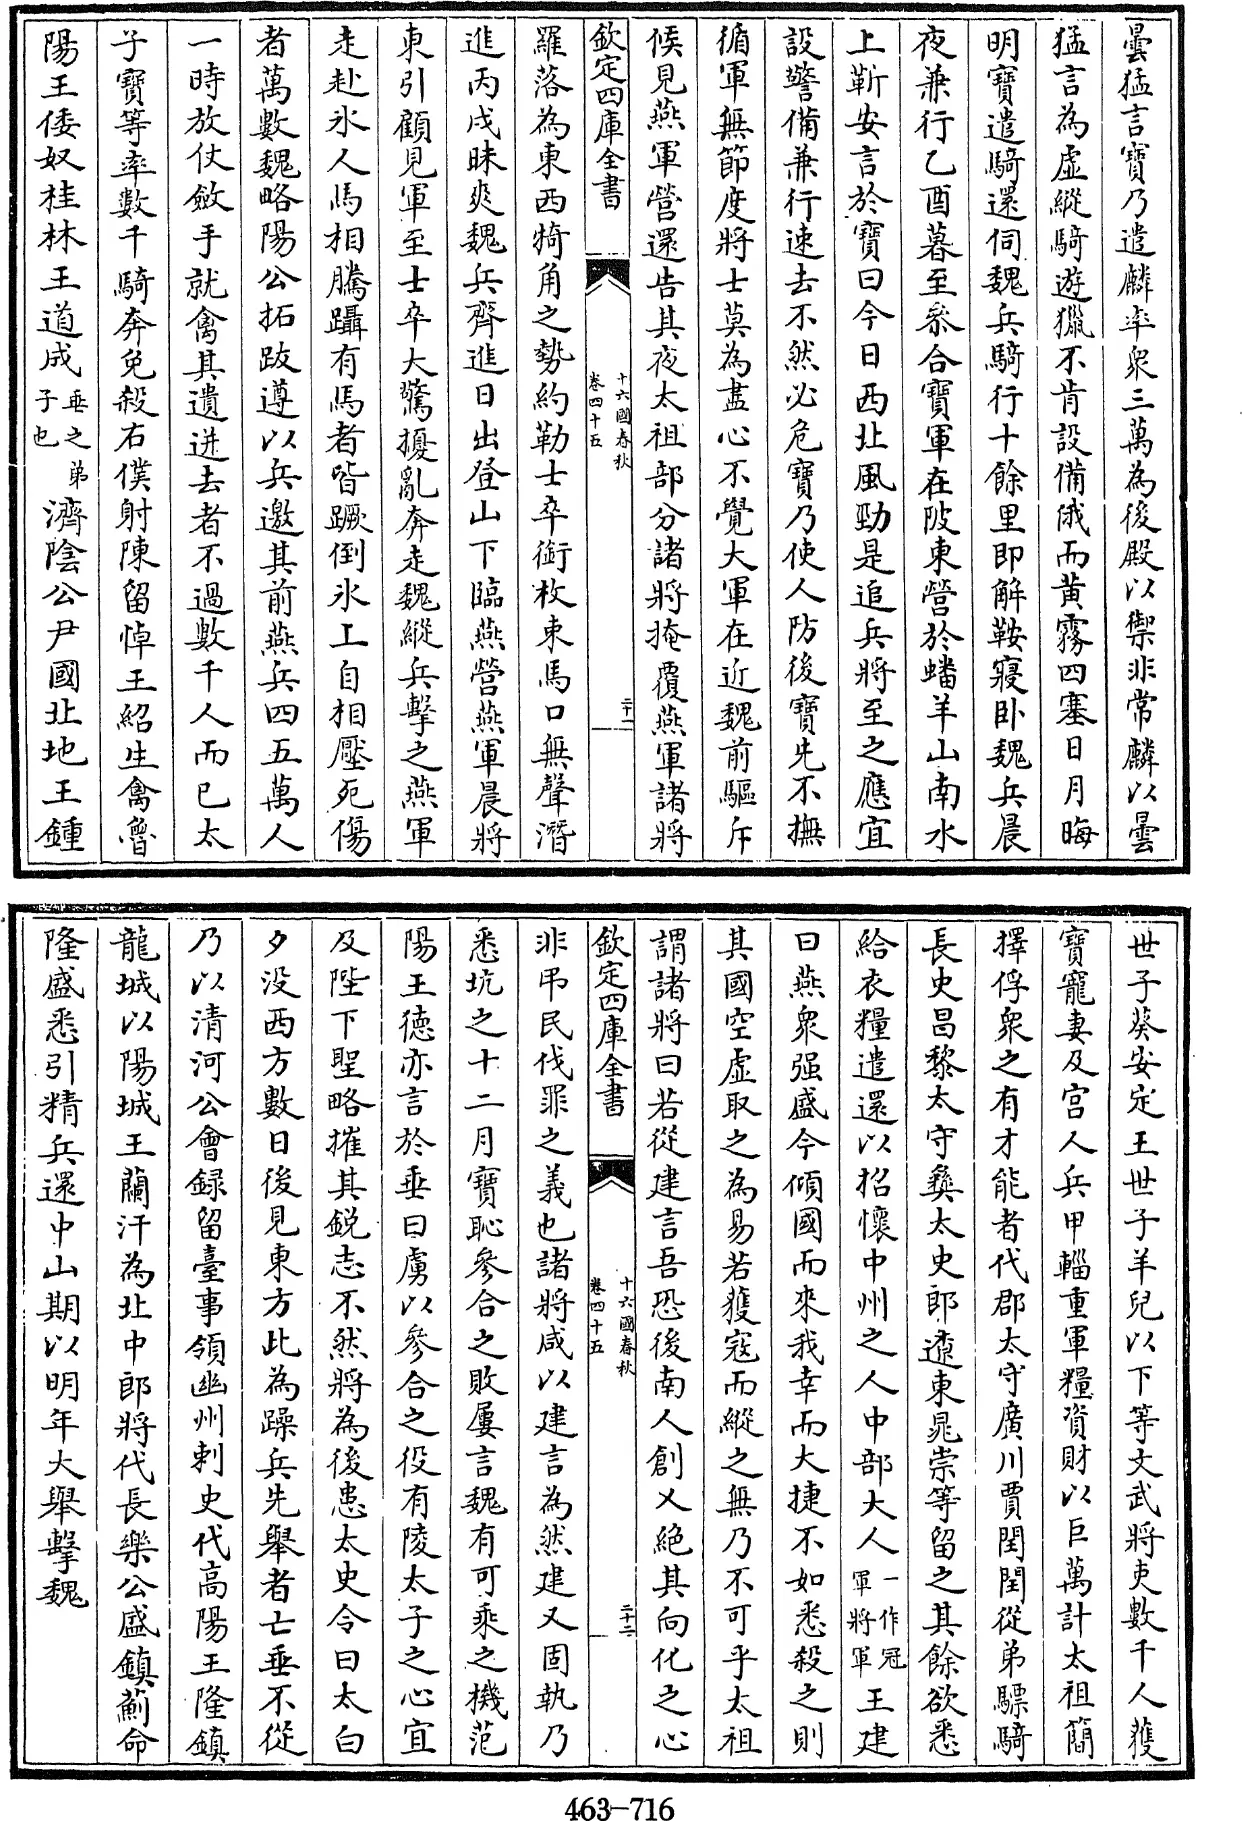 曇猛言寶乃遣麟率衆三萬為後殿以禦非常麟以曇
猛言為虛縱騎遊獵不肯設備俄而黄霧四塞日月晦
明寶遣騎還伺魏兵騎行十餘里即解鞍寢卧魏兵晨
夜兼行乙酉暮至叅合寶軍在陂東營於蟠羊山南水
上靳安言於寶曰今日西北風勁是追兵將至之應宜
設警備兼行速去不然必危寶乃使人防後寶先不撫
循軍無節度將士莫為盡心不覺大軍在近魏前驅斥
候見燕軍營還告其夜太祖部分諸將掩覆燕軍諸將
欽定四庫全書
十六國春秋
卷四十五
二十一
羅落為東西掎角之勢約勒士卒銜枚束馬口無聲潛
進丙戌昧爽魏兵齊進日出登山下臨燕營燕軍晨將
東引顧見軍至士卒大驚擾亂奔走魏縱兵擊之燕軍
走赴氷人馬相騰躡有馬者皆蹶倒氷上自相壓死傷
者萬數魏略陽公拓跋遵以兵邀其前燕兵四五萬人
一時放仗斂手就禽其遺迸去者不過數千人而已太
子寶等率數千騎奔免殺右僕射陳留悼王紹生禽魯
陽王倭奴桂林王道成垂之弟子也濟陰公尹國北地王鍾
世子葵安定王世子羊兒以下等文武將吏數千人獲
寶寵妻及宫人兵甲輜重軍糧資財以巨萬計太祖簡
擇俘衆之有才能者代郡太守廣川賈閏閏從弟驃騎
長史昌黎太守彝太史郎遼東晁崇等留之其餘欲悉
給衣糧遣還以招懷中州之人中部大人一作冠軍將軍王建
曰燕衆强盛今傾國而來我幸而大捷不如悉殺之則
其國空虛取之為易若獲寇而縱之無乃不可乎太祖
謂諸將曰若從建言吾恐後南人創乂絶其向化之心
欽定四庫全書
十六國春秋
卷四十五
二十二
非弔民伐罪之義也諸將咸以建言為然建又固執乃
悉坑之十二月寶恥參合之敗屢言魏有可乘之機范
陽王德亦言於垂曰虜以參合之役有陵太子之心宜
及陛下聖略摧其鋭志不然將為後患太史令曰太白
夕没西方數日後見東方此為躁兵先舉者亡垂不從
乃以清河公會録留臺事領幽州刺史代高陽王隆鎮
龍城以陽城王蘭汗為北中郎將代長樂公盛鎮薊命
隆盛悉引精兵還中山期以明年大舉擊魏
463-716